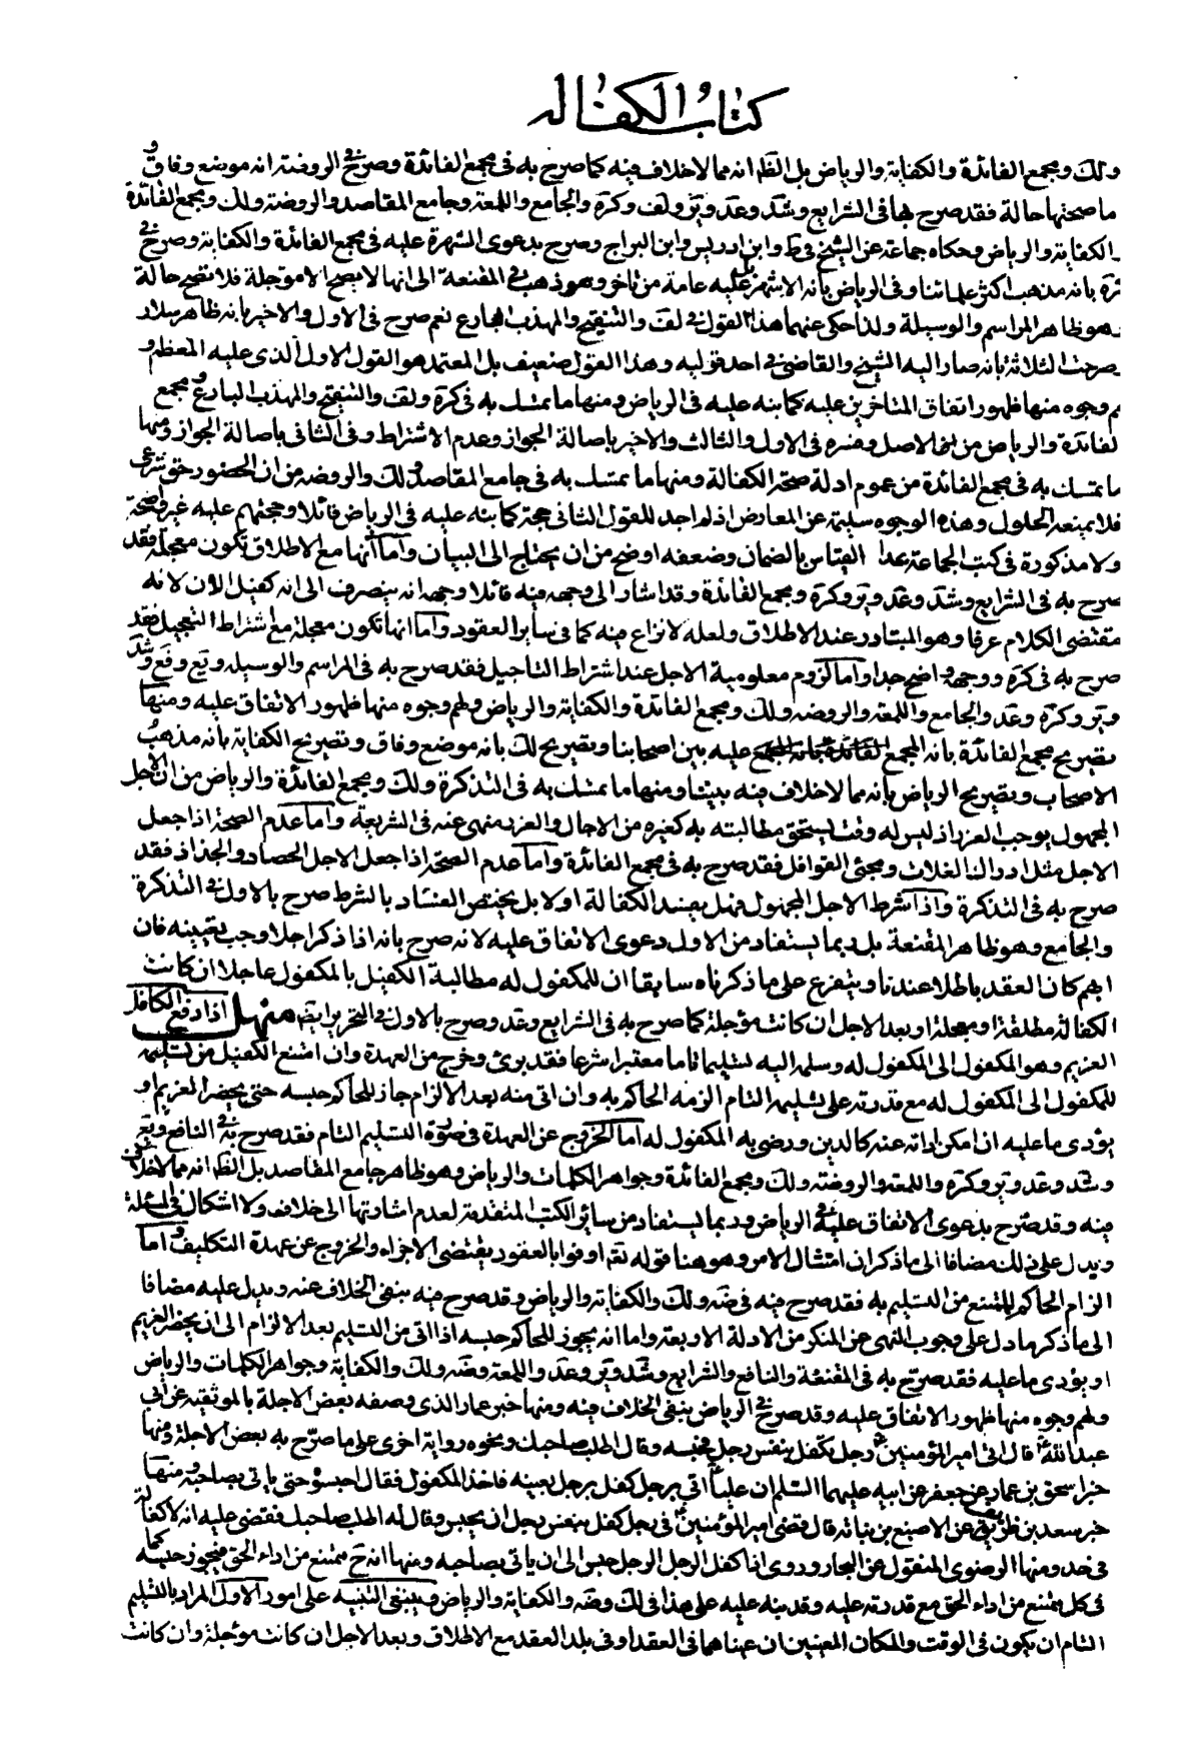 كتاب الكفالة
ولك ومجمع الفائدة والكفاية والرياض بل الظ انه مما لا خلاف فيه كما صرح به فى مجمع الفائدة وصرح فى الروضة انه موضع وفاق و
ما صحتها حالة فقد صرح بها فى الشرايع وشد وعد وير ولف وكرة والجامع واللمعة وجامع المقاصد والروضة ولك ومجمع الفائدة
الكفاية والرياض وحكاه جماعة عن الشيخ فى ط وابن ادريس وابن البراج وصرح بدعوى الشهرة عليه فى مجمع الفائدة والكفاية وصرح فى
كرة بانه مذهب اكثر علمائنا وفى الرياض بانه الاشهر بل عليه عامة من تاخر وهو ذهب فى المقنعة الى انها لا يصح الا موجلة فلا تصح حالة
وهو ظاهر المراسم والوسيلة ولذا حكى عنهما هذا القول فى لف والتنقيح والمهذب البارع نعم صرح فى الاول والاخير بانه ظاهر سلار
صرحت الثلاثة بانه صار اليه الشيخ والقاضى فى احد قوليه وهذا القول ضعيف بل المعتمد هو القول الاول الذى عليه المعظم و
لهم وجوه منها ظهور اتفاق المتاخرين عليه كما بنه عليه فى الرياض ومنها ما تمسك به فى كرة ولف والتنقيح والمهذب البارع ومجمع
لفائدة والرياض من الاصل وفسره فى الاول والثالث والاخير باصالة الجواز وعدم الاشتراط وفى الثانى باصالة الجواز ومنها
ما تمسك به فى مجمع الفائدة من عموم ادلة صحة الكفالة ومنها ما تمسك به فى جامع المقاصد ولك والروضه من ان الحضور حق شرعى
فلا يمنعه الحلول وهذه الوجوه سليمة عن المعارض اذ لم اجد للقول الثانى حجة كما بنه عليه فى الرياض قائلا وحجتهم عليه غير واضحة
ولا مذكورة فى كتب الجماعة عدا القياس بالضمان وضعفه اوضح من ان يحتاج الى البيان واما انها مع الاطلاق تكون معجلة فقد
صرح به فى الشرايع وشد وعد وير وكرة ومجمع الفائدة وقد اشار الى وجهه فيه قائلا وجهه انه ينصرف الى انه كفيل الان لانه
مقتضى الكلام عرفا وهو المتبادر عند الاطلاق ولعله لا نزاع فيه كما فى سائر العقود واما انها تكون معجلة مع اشتراط التعجيل فقد
صرح به فى كرة ووجهه واضح جدا واما لزوم معلومية الاجل عند اشتراط التاجيل فقد صرح به فى المراسم والوسيله ويع وفع وشد
وير وكرة وعد والجامع واللمعه والروضه ولك ومجمع الفائدة والكفاية والرياض ولهم وجوه منها ظهور الاتفاق عليه ومنها
تصريح مجمع الفائدة بانه المجمع عليه بين اصحابنا وتصريح لك بانه موضع وفاق وتصريح الكفاية بانه مذهب
الاصحاب وتصريح الرياض بانه مما لا خلاف فيه بيننا ومنها ما تمسك به فى التذكرة ولك ومجمع الفائدة والرياض من ان الاجل
المجهول يوجب الغرر اذ ليس له وقت يستحق مطالبته به كغيره من الاجال والغرر منهى عنه فى الشريعة واما عدم الصحة اذا جعل
الاجل مثل ادراك الغلات ومجئى القوافل فقد صرح به فى مجمع الفائدة واما عدم الصحة اذا جعل الاجل الحصاد والجذاذ فقد
صرح به فى التذكرة واذا شرط الاجل المجهول فهل يفسد الكفالة اولا بل يختص الفساد بالشرط صرح بالاول فى التذكرة
والجامع وهو ظاهر المقنعة بل ربما يستفاد من الاول دعوى الاتفاق عليه لانه صرح بانه اذا ذكر اجلا وجب تعيينه فان
ابهم كان العقد باطلا عندنا ويتفرع على ما ذكرناه سابقا ان للمكفول له مطالبة الكفيل بالمكفول عاجلا ان كانت
الكفالة مطلقة او معجلة او بعد الاجل ان كانت مؤجلة كما صرح به فى الشرايع وعد وصرح بالاول فى التحرير ايضا منهل اذا دفع الكافل
الغريم وهو المكفول الى المكفول له وسلمه اليه تسليما تاما معتبرا شرعا فقد برئ وخرج من العهدة وان امتنع الكفيل من تسليمه
للمكفول الى المكفول له مع قدرته على تسليمه التام الزمه الحاكم به وان ابى منه بعد الالزام جاز للحاكم حبسه حتى يحضر الغريم او
يؤدى ما عليه ان امكن ادائه عنه كالدين ورضى به المكفول له اما الخروج عن العهدة فى صورة التسليم التام فقد صرح به فى النافع ويع
وشد وعد وير وكرة واللمعه والروضة ولك ومجمع الفائدة وجواهر الكلمات والرياض وهو ظاهر جامع المقاصد بل الظ انه مما لا خلاف
فيه وقد صرح بدعوى الاتفاق عليه فى الرياض وربما يستفاد من سائر الكتب المتقدمة لعدم اشارتها الى خلاف ولا اشكال فى المسئلة
ويدل على ذلك مضافا الى ما ذكر ان امتثال الامر وهو هنا قوله تع اوفوا بالعقود يقتضى الاجزاء والخروج عن عهدة التكليف واما
الزام الحاكم للمتنع من التسليم به فقد صرح فيه فى ضه ولك والكفاية والرياض وقد صرح فيه بنفى الخلاف عنه ويدل عليه مضافا
الى ما ذكر ما دل على وجوب النهى عن المنكر من الادلة الاربعة واما انه يجوز للحاكم حبسه اذا ابى من التسليم بعد الالزام الى ان يحضر الغريم
او يؤدى ما عليه فقد صرح به فى المقنعة والنافع والشرايع وشد وير وعد واللمعة وضه ولك والكفاية وجواهر الكلمات والرياض
ولهم وجوه منها ظهور الاتفاق عليه وقد صرح فى الرياض بنفى الخلاف فيه ومنها خبر عمار الذى وصفه بعض الاجلة بالموثقيه عن ابى
عبد الله ع قال اتى امير المؤمنين ع برجل تكفل بنفس رجل فحبسه وقال اطلب صاحبك ونحوه رواية اخرى على ما صرح به بعض الاجلة ومنها
خبر اسحق بن عمار عن جعفر عن ابيه عليهما السلم ان عليا ع اتى برجل كفل برجل بعينه فاخذ المكفول فقال احبسوه حتى ياتى بصاحبه ومنها
خبر سعد بن طريف عن الاصبغ بن نباته قال قضى امير المؤمنين ع فى رجل كفل بنفس رجل ان يحبس وقال له اطلب صاحبك فقضى عليه انه لا كفالة
فى حد ومنها الرضوى المنقول عن البحار وروى اذا كفل الرجل الرجل حبس الى ان ياتى بصاحبه ومنها انه ح ممتنع من اداء الحق فيجوز حبسه كما
فى كل ممتنع من اداء الحق مع قدرته عليه وقد نبه عليه على هذا فى لك وضه والكفاية والرياض وينبغى التنبيه على امور الاول المراد بالتسليم
التام ان يكون فى الوقت والمكان المعينين ان عيناهما فى العقد او فى بلد العقد مع الاطلاق وبعد الاجل ان كانت مؤجلة وان كانت